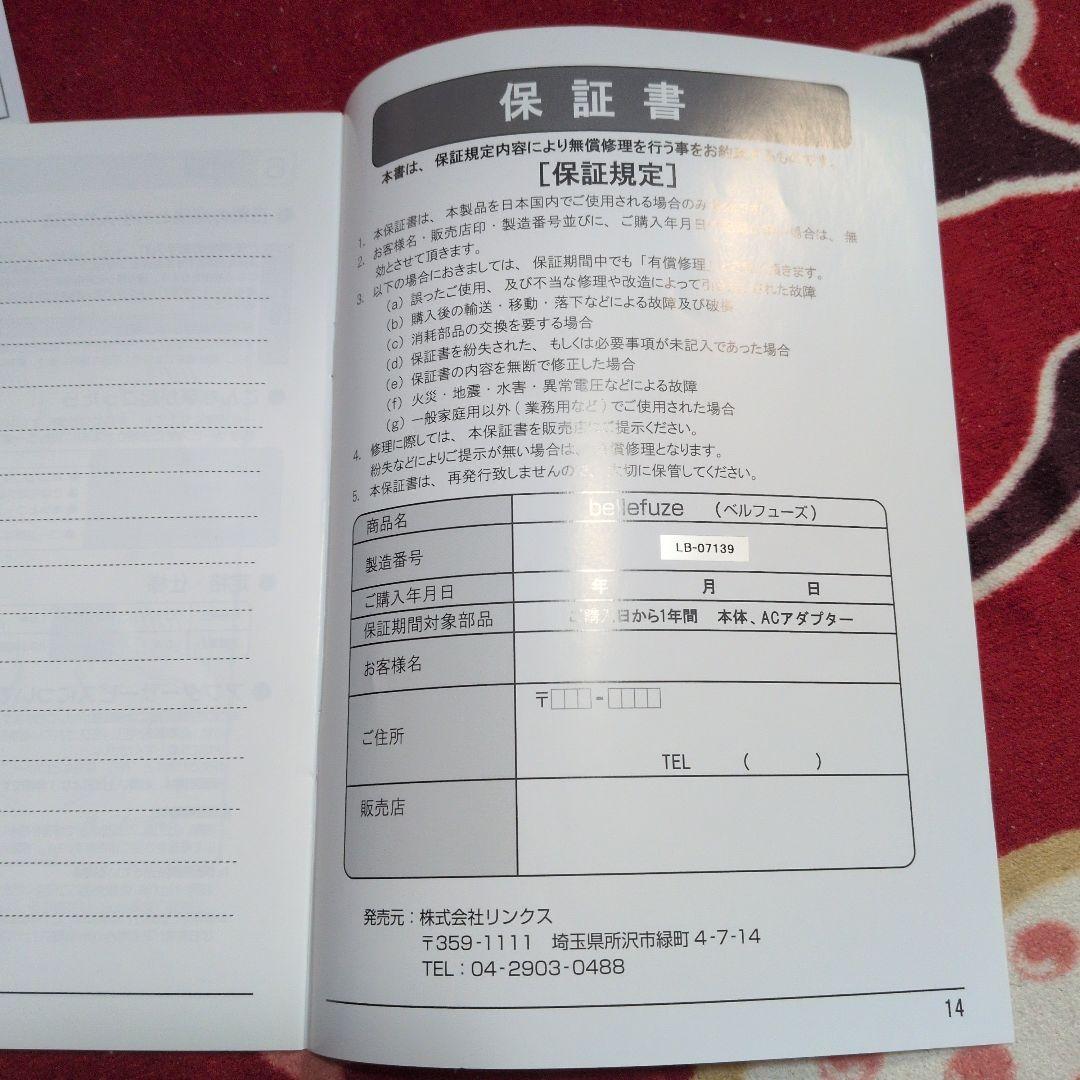 保証書
本書は、保証規定内容により無償修理を行う事をお約束するものです。
[保証規定]
1. 本保証書は、本製品を日本国内でご使用される場合のみ
2. お客様名・販売店印・製造番号並びに、ご購入年月日 場合は、無
効とさせて頂きます。
3. 以下の場合におきましては、保証期間中でも「有償修理」 頂きます。
(a) 誤ったご使用、及び不当な修理や改造によって引 された故障
(b) 購入後の輸送・移動・落下などによる故障及び破損
(c) 消耗部品の交換を要する場合
(d) 保証書を紛失された、もしくは必要事項が未記入であった場合
(e) 保証書の内容を無断で修正した場合
(f) 火災・地震・水害・異常電圧などによる故障
(g) 一般家庭用以外(業務用など)でご使用された場合
4. 修理に際しては、本保証書を販売店にご提示ください。
紛失などによりご提示が無い場合は、有償修理となります。
5. 本保証書は、再発行致しませんので、大切に保管してください。
商品名 bellefuze (ベルフューズ)
製造番号 LB-07139
ご購入年月日 年 月 日
保証期間対象部品 ご購入日から1年間 本体、ACアダプター
お客様名
ご住所 〒 -
TEL ( )
販売店
発売元:株式会社リンクス
〒359-1111 埼玉県所沢市緑町4-7-14
TEL:04-2903-0488
14